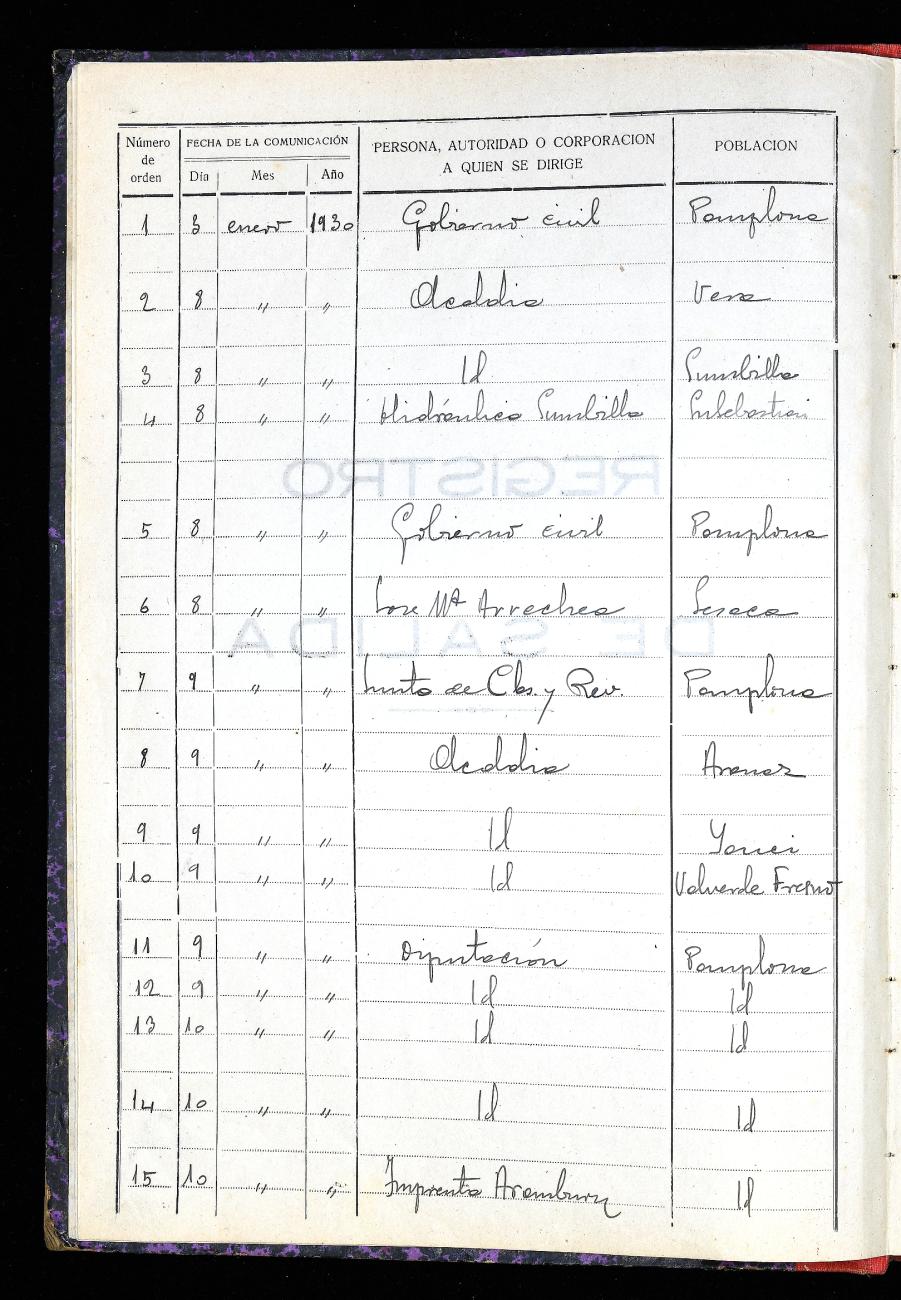 Número de orden | FECHA DE LA COMUNICACIÓN | PERSONA, AUTORIDAD O CORPORACION A QUIEN SE DIRIGE | POBLACION
Día | Mes | Año
1 3 enero 1930 Gobierno civil Pamplona
2 8 " " Alcaldia Vera
3 8 " " Id Sumbilla
4 8 " " Hidráulica Sumbilla
REGISTRO
5 8 " " Gobierno civil Pamplona
6 8 " " Jose Mª Arrechea Lesaca
DE SALIDA
7 9 " " Junta de Clas. y Rev. Pamplona
8 9 " " Alcaldia Aranaz
9 9 " " Id Yanci
10 9 " " Id Valverde Fresno
11 9 " " Diputación Pamplona
12 9 " " Id Id
13 10 " " Id Id
14 10 " " Id Id
15 10 " " Imprenta Aramburu Id